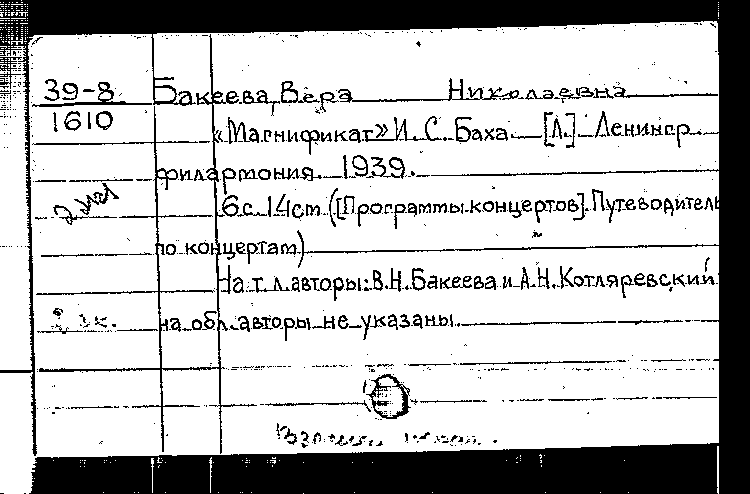 39-8 Бакеева, Вера Николаевна
1610 «Магнификат» И. С. Баха. [Л.] Ленингр.
филармония. 1939.
6 с. 14 cm ([Программы концертов]. Путеводитель
по концертам)
На т. л. авторы: В.Н. Бакеева и А.Н. Котляревский
2 эк. на обл. авторы не указаны.